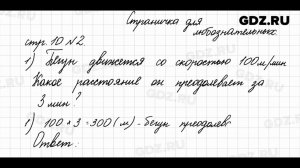 GDZ.RU
Страничка для
любознательных
стр. 10 № 2
1) Бегун движется со скоростью 100 м/мин
Какое расстояние он преодолевает за
3 мин?
1) 100 * 3 = 300 (м) - бегун преодолев
Ответ:
GDZ.RU